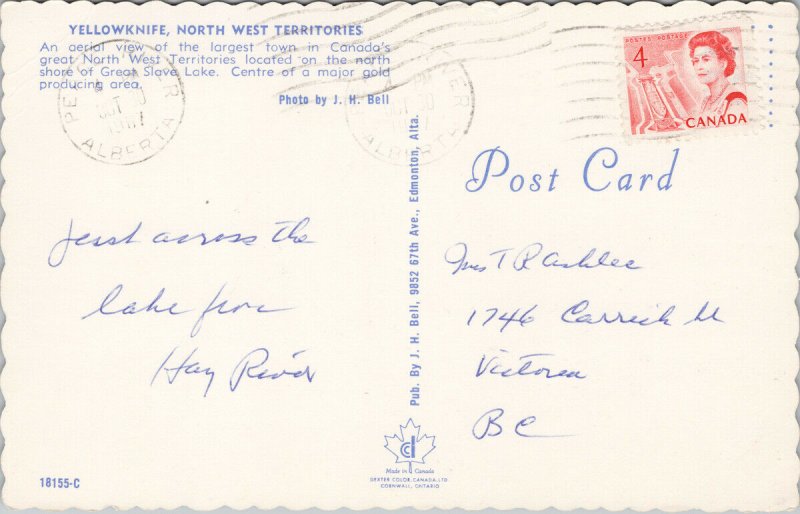 YELLOWKNIFE, NORTH WEST TERRITORIES
An aerial view of the largest town in Canada's
great North West Territories located on the north
shore of Great Slave Lake. Centre of a major gold
producing area.
Photo by J. H. Bell
PEACE RIVER
OCT
1967
ALBERTA
4
POSTES POSTAGE
CANADA
Post Card
Just across the
lake from
Hay River
Pub. By J. H. Bell, 9852 67th Ave., Edmonton, Alta.
Mrs T R Ashlee
1746 Carrick St
Victoria
BC
Made in Canada
DEXTER COLOR CANADA LTD.
CORNWALL, ONTARIO
18155-C